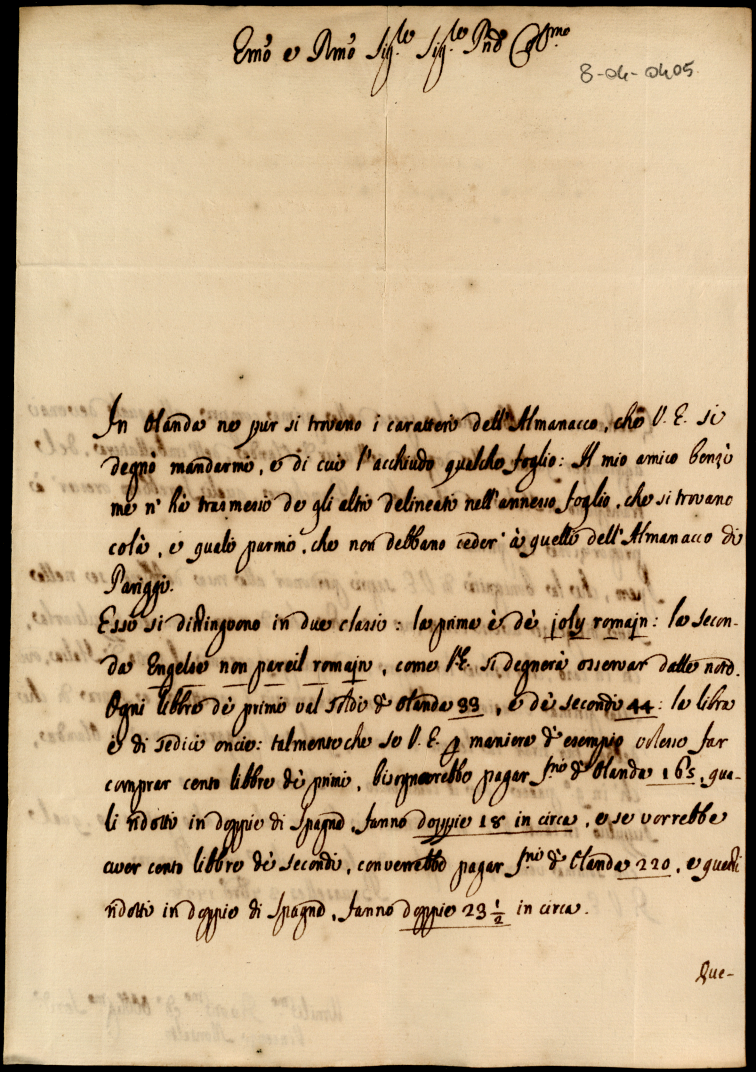 Emo e Rmo Sig.le Sig.le Pnd Col.mo
8-04-0405
In Olanda ne pur si trovano i caratteri dell'Almanacco, che V. E. si
degnò mandarmi, e di cui l'acchiudo qualche foglio: Il mio amico benzì
me n' hà trasmesso de gli altri delineati nell'annesso foglio, che si trovano
colà, e quali parmi, che non debbano ceder' à quelli dell'Almanacco di
Pariggi.
Essi si distinguono in due classi: la prima è dè joly romajn: la secon-
da Engelse non pareil romajn, come V.E. si degnerà osservar dalle nord.
Ogni libbra dè primi val soldi d'Olanda 33, e dè secondi 44: la libra
è di sedici oncie: talmente che se V. E. p maniera d'esempio volesse far
comprar cento libbre dè primi, bisognarebbe pagar f.ni d'Olanda 165, qua-
li ridotti in doppie di Spagna, fanno doppie 18 in circa, e se vorrebbe
aver cento libbre dè secondi, converrebbe pagar f.ni d'Olanda 220, e questi
ridotti in doppie di Spagna, fanno doppie 23 1/2 in circa.
Que-